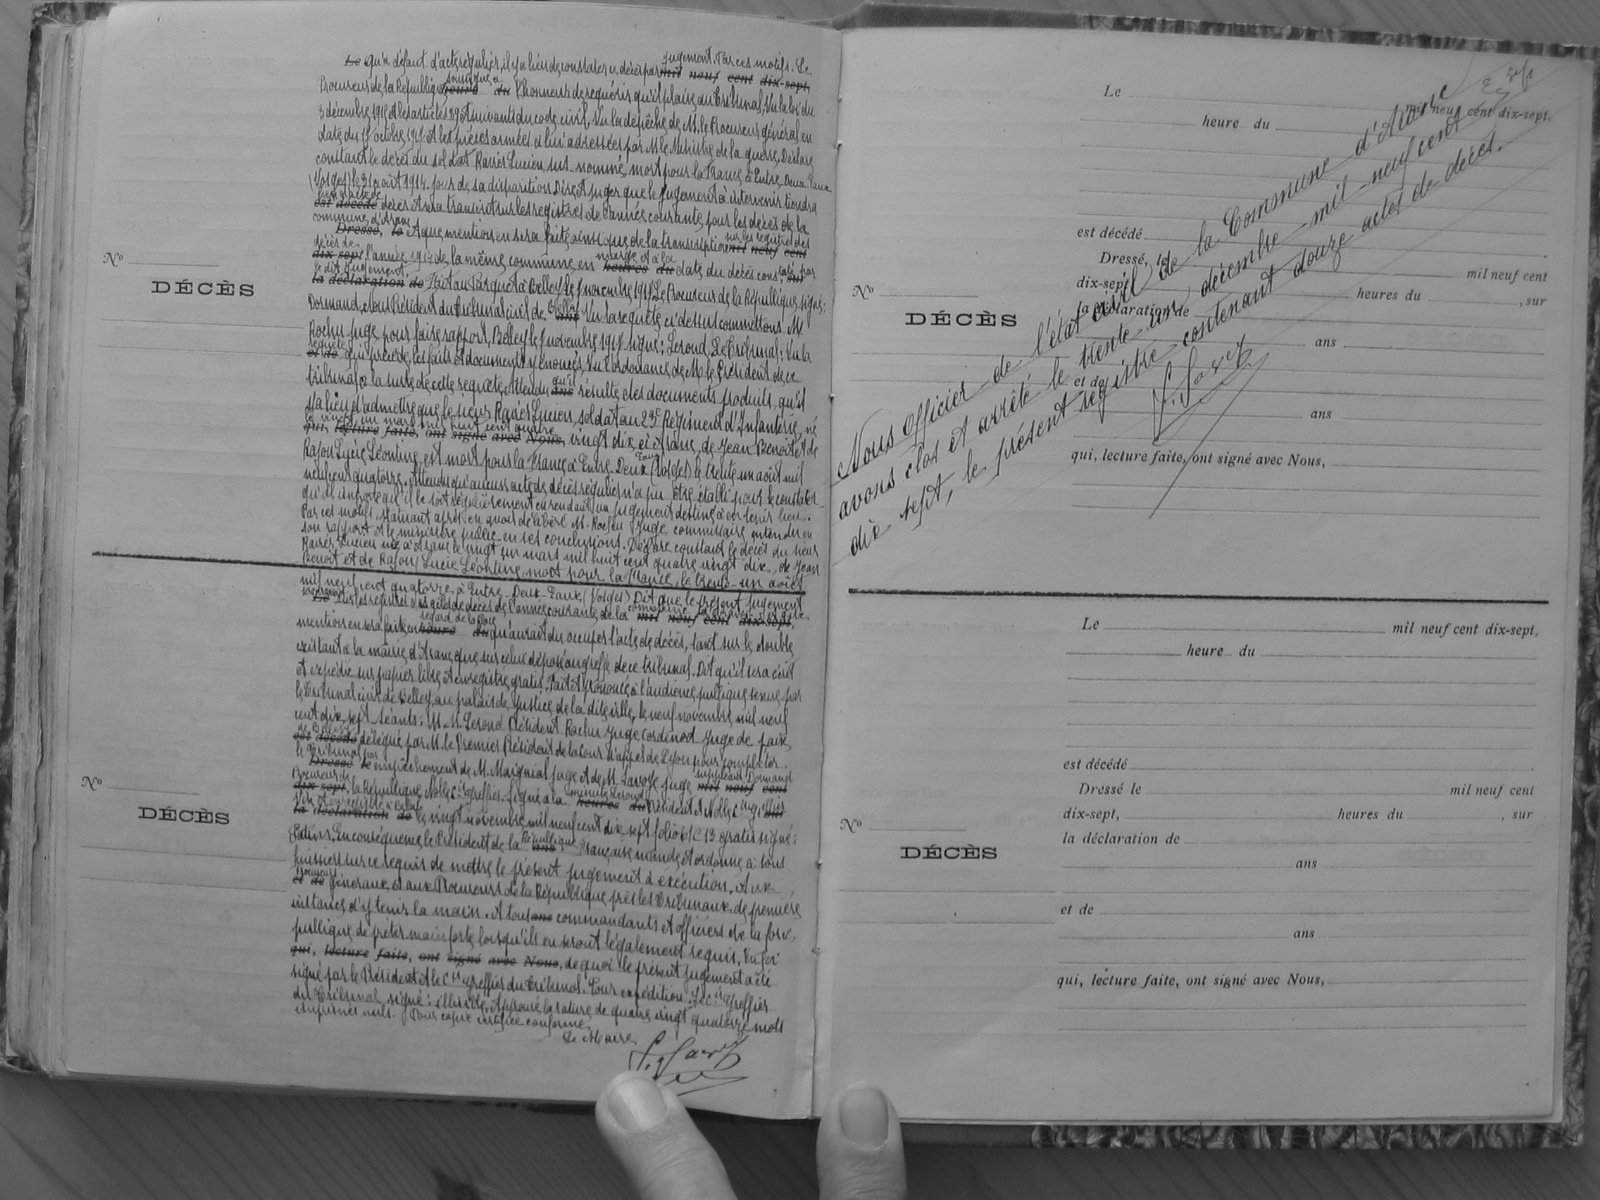 Le qu'à défaut d'acte régulier, il y a lieu de constater ce décès par jugement. Par ces motifs. Le mil neuf cent dix-sept,
Procureur de la République soussigné a heure du l'honneur de requérir qu'il plaise au Tribunal, Vu la loi du
3 décembre 1915 et les articles 89 et suivants du code civil, Vu la dépêche de M. le Procureur général en
date du 17 octobre 1917 et les pièces armées à lui adressées par M. le Ministre de la guerre, Déclare
constant le décès du soldat Ravier Lucien, sus-nommé, mort pour la France à Entre Deux Eaux
(Vosges) le 31 août 1914, jour de sa disparition. Dire et juger que le jugement à intervenir tiendra
lieu d'acte de est décédé décès et sera transcrit sur les registres de l'année courante, pour les décès de la
commune d'Aranc
Dressé, le Et que mention en sera faite ainsi que de la transcription sur les registres des mil neuf cent
décès de dix-sept l'année 1914 de la même commune en marge et à la heures du date du décès constaté par sur
le dit jugement. la déclaration de Fait au Parquet à Belley, le novembre 1917. Le Procureur de la République, signé:
Dormand, Nous Président du Tribunal civil de Belley ans Vu la requête ci-dessus commettons M.
Rochu Juge pour faire rapport, Belley, le novembre 1917. signé: Leroud. Le Tribunal: Vu la
requête et de qui précède, les faits et documents y énoncés, Vu l'ordonnance de M. le Président de ce
tribunal à la suite de cette requête, Attendu qu'il ans résulte des documents produits, qu'il
y a lieu d'admettre que le sieur Ravier Lucien, soldat au 23e Régiment d'Infanterie, né
le vingt un mars mil huit cent quatre
qui, lecture faite, ont signé avec Nous, vingt dix, à Aranc, de Jean Benoit et de
Rafour Lucie Léontine, est mort pour la France à Entre Deux Eaux (Vosges) le trente un août mil
neuf cent quatorze. Attendu qu'aucun acte de décès régulier n'a pu être établi pour le constater
qu'il importe qu'il le soit régulièrement en rendant un jugement destiné à en tenir lieu.
Par ces motifs, statuant après en avoir délibéré M. Rochu Juge commissaire entendu en
son rapport et le ministère public en ses conclusions. Déclare constant le décès du sieur
Ravier Lucien né à Aranc le vingt un mars mil huit cent quatre vingt dix, de Jean
Benoit et de Rafour Lucie Léontine, mort pour la France, le trente-un août
mil neuf cent quatorze, à Entre-Deux-Eaux (Vosges) Dit que le présent jugement
Le sur les registres des actes de décès de l'année courante de la commune mil neuf cent dix-sept,
mention en sera faite en heure regard de la place du qu'aurait dû occuper l'acte de décès, tant sur le double
existant à la mairie d'Aranc que sur celui déposé au greffe de ce tribunal. Dit qu'il sera écrit
et expédié sur papier libre et enregistré gratis. Fait et prononcé à l'audience publique tenue par
le Tribunal civil de Belley, au palais de Justice de la dite ville, le neuf novembre mil neuf
cent dix-sept. Séants: M.M. Leroud Président Rochu Juge Cordenod Juge de paix
de Belley est décédé délégué par M. le Premier Président de la Cour d'appel de Lyon pour compléter
le Tribunal par
Dressé le empêchement de M. Maignial juge et de M. Lavoye juge suppléant Dormand mil neuf cent
Procureur de dix-sept, la République, Nolle cis greffier. Signé à la heures du Président et Nolle cis sur
Visé et enregistré à la déclaration de le vingt novembre mil neuf cent dix sept folio 61 C 13 gratis signé:
En conséquence le Président de la République ans Française mande et ordonne à tous
huissiers sur ce requis de mettre le présent jugement à exécution. Aux
Procureurs et de généraux, et aux Procureurs de la République près les Tribunaux de première
instance d'y tenir la main. A tous ans commandants et officiers de la force
publique de prêter main forte lorsqu'ils en seront légalement requis. En foi
qui, lecture faite, ont signé avec Nous, de quoi le présent jugement a été
signé par le Président et le cis greffier du tribunal. Pour expédition: Le cis Greffier
du Tribunal, signé: illisible. Approuvé la rature de quatre vingt quatorze mots
imprimés nuls. Pour copie certifiée conforme.
Le Maire,
N°
DÉCÈS
N°
DÉCÈS
Le
mil neuf cent dix-sept,
heure du
est décédé
Dressé, le
mil neuf cent
dix-sept
heures du
, sur
la déclaration de
ans
et de
ans
qui, lecture faite, ont signé avec Nous,
N°
DÉCÈS
Nous Officier de l'état civil de la Commune d'Aranc
avons clos et arrêté le trente un décembre mil-neuf cent
dix sept, le présent registre contenant douze actes de décès.
Le
mil neuf cent dix-sept,
heure du
est décédé
Dressé le
mil neuf cent
dix-sept,
heures du
, sur
la déclaration de
ans
et de
ans
qui, lecture faite, ont signé avec Nous,
N°
DÉCÈS